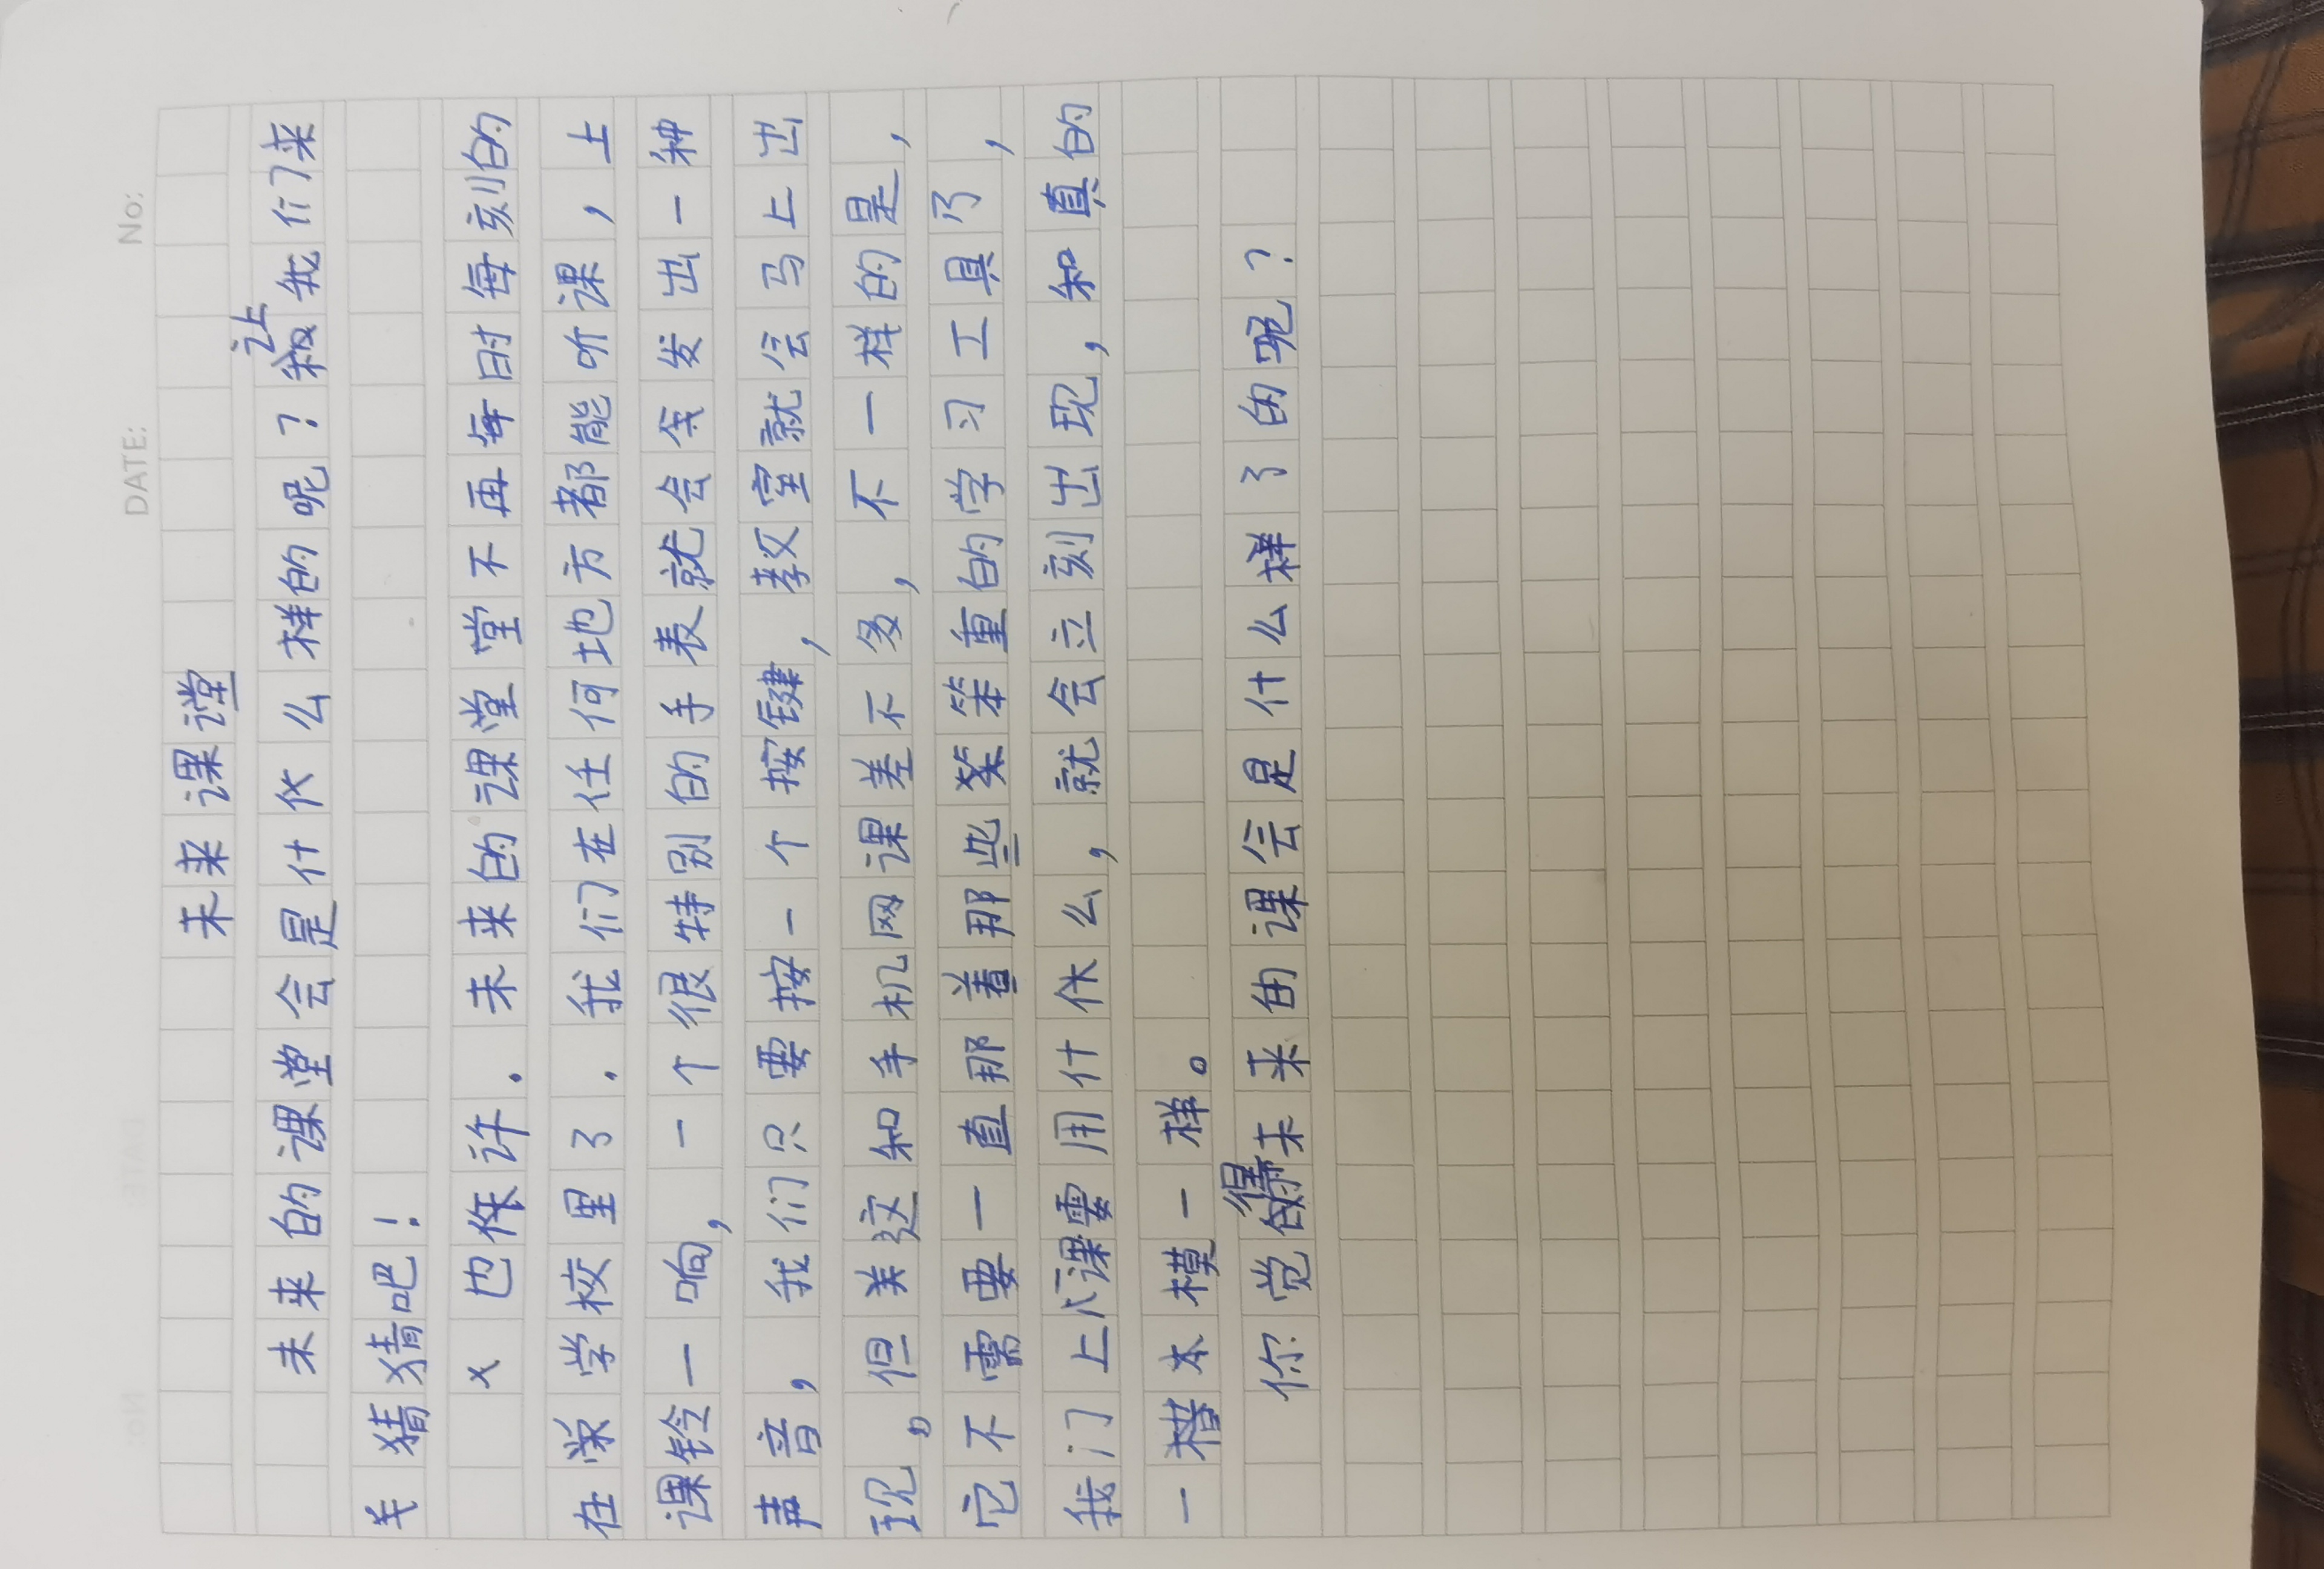 DATE: No:
未来课堂
未来的课堂会是什么样的呢？让我们来
猜猜吧！
也许．未来的课堂不再每时每刻的
在学校里了．我们在任何地方都能听课，上
课铃一响，一个很特别的手表就会发出一种
声音，我们只要按一个按键，教室就会马上出
现。但这和手机网课差不多，不一样的是，
它不需要一直那着那些笨重的学习工具了，
我门上课需用什么，就会立刻出现，和真的
一模一样。
你觉得未来的课会是什么样了的呢？